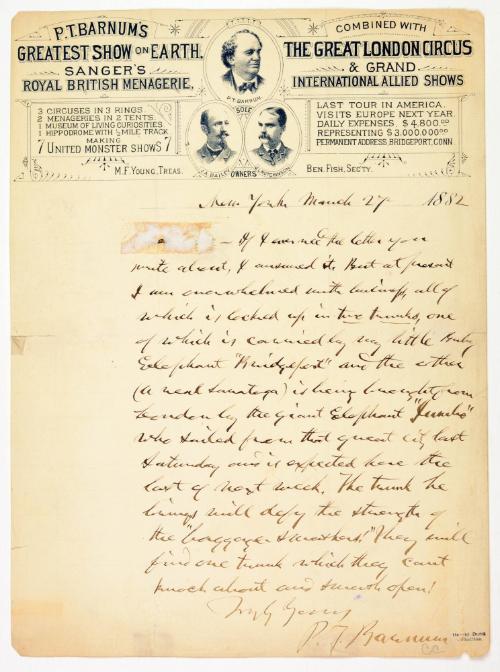 P.T. BARNUM'S
GREATEST SHOW ON EARTH.
SANGER'S
ROYAL BRITISH MENAGERIE,
COMBINED WITH
THE GREAT LONDON CIRCUS
& GRAND
INTERNATIONAL ALLIED SHOWS
P.T. BARNUM
3 CIRCUSES IN 3 RINGS.
2 MENAGERIES IN 2 TENTS.
1 MUSEUM OF LIVING CURIOSITIES
1 HIPPODROME WITH ½ MILE TRACK
MAKING
7 UNITED MONSTER SHOWS 7
SOLE
J.A. BAILEY J.L. HUTCHINSON
OWNERS
LAST TOUR IN AMERICA.
VISITS EUROPE NEXT YEAR.
DAILY EXPENSES, $4.800.00
REPRESENTING $3.000.000.00
PERMANENT ADDRESS, BRIDGEPORT, CONN
M.F. YOUNG, TREAS.
BEN. FISH, SECTY.
New York March 27 1882
— If I ever recd the letter you
write about, I answered it. But at present
I am overwhelmed with business, all of
which is locked up in two trunks, one
of which is carried by my little Baby
Elephant "Bridgeport" and the other
(a real Saratoga) is being brought from
London by the Giant Elephant "Jumbo"
who sailed from that great city last
Saturday and is expected here the
last of next week. The trunk he
brings will defy the strength of
the "baggage smashers." They will
find one trunk which they cant
knock about and smash open!
Truly Yours
P. T. Barnum